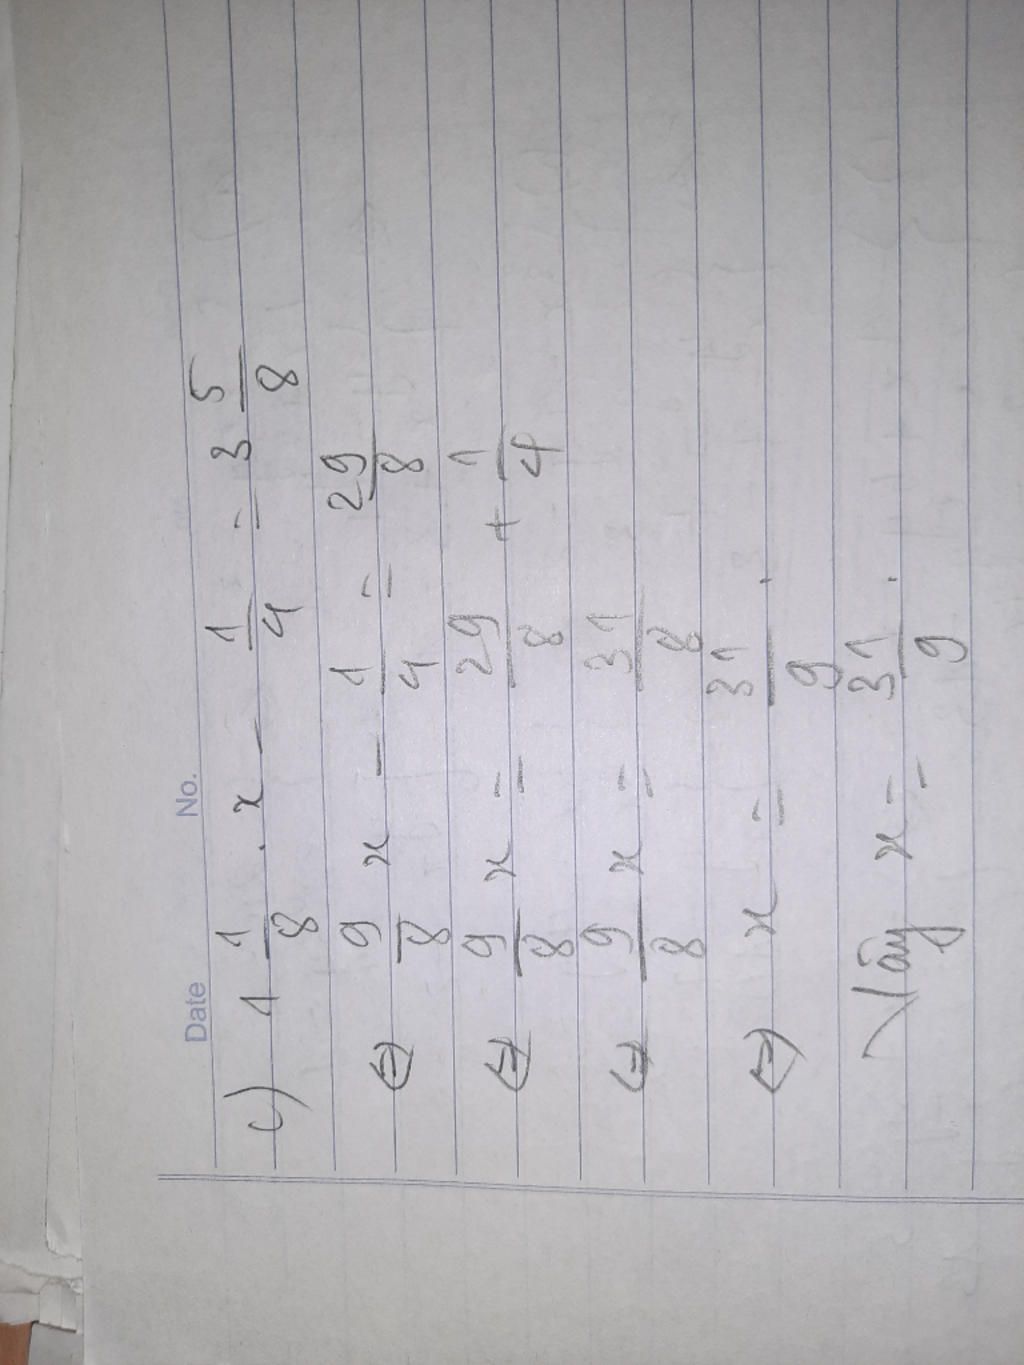 Date No.
c) 1 1/8 . x - 1/4 = 3 5/8
⇔ 9/8 x - 1/4 = 29/8
⇔ 9/8 x = 29/8 + 1/4
⇔ 9/8 x = 31/8
⇔ x = 31/9 .
Vậy x = 31/9 .